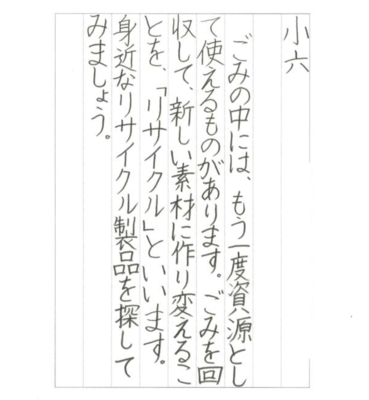 小六
ごみの中には、もう一度資源とし
て使えるものがあります。ごみを回
収して、新しい素材に作り変えるこ
とを、「リサイクル」といいます。
身近なリサイクル製品を探して
みましょう。